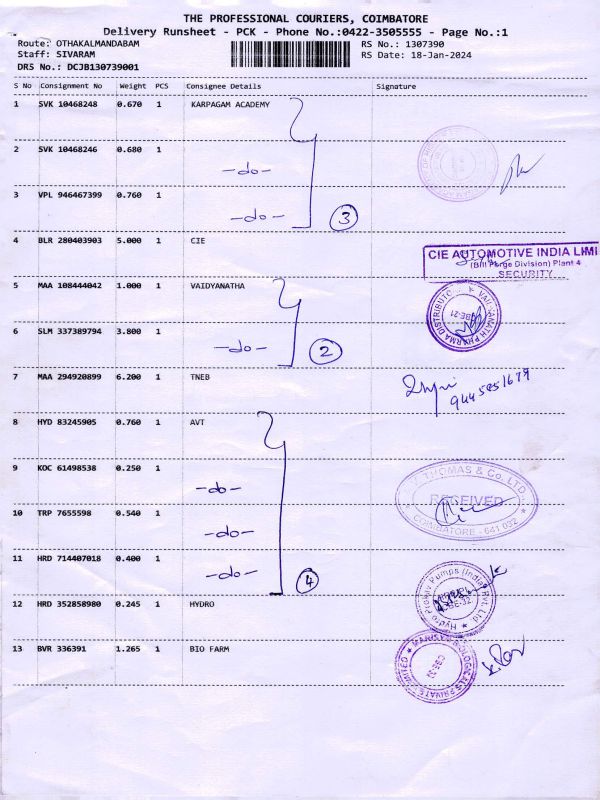 THE PROFESSIONAL COURIERS, COIMBATORE
Delivery Runsheet - PCK - Phone No.:0422-3505555 - Page No.:1
Route: OTHAKALMANDABAM
RS No.: 1307390
Staff: SIVARAM
RS Date: 18-Jan-2024
DRS No.: DCJB130739001
S No Consignment No Weight PCS Consignee Details Signature
1 SVK 10468248 0.670 1 KARPAGAM ACADEMY
2 SVK 10468246 0.680 1 -do-
3 VPL 946467399 0.760 1 -do- 3
4 BLR 280403903 5.000 1 CIE
CIE AUTOMOTIVE INDIA LIMI
(Bill Forge Division) Plant 4
SECURITY
5 MAA 108444042 1.000 1 VAIDYANATHA
VAIDYANATH PHARMA DISTRIBUTO
CBE-21
6 SLM 337389794 3.800 1 -do- 2
7 MAA 294920899 6.200 1 TNEB
9445851679
8 HYD 83245905 0.760 1 AVT
9 KOC 61498538 0.250 1 -do-
THOMAS & Co. LTD.
RECEIVED
COIMBATORE - 641 032
10 TRP 7655598 0.540 1 -do-
11 HRD 714407018 0.400 1 -do- 4
12 HRD 352858980 0.245 1 HYDRO
Hydro Prokav Pumps (India) Pvt. Ltd.
13 BVR 336391 1.265 1 BIO FARM